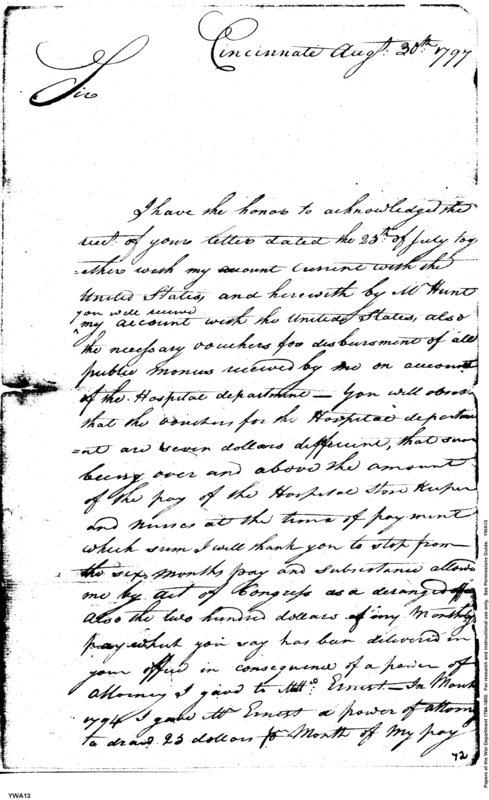 Cincinnate Augt. 30th 1797
Sir
I have the honor to acknowledge the
rect. of yours letter dated the 25th of July tog
=ether with my account Current with the
United States, and herewith by Mr Hunt
you will receive
^ my account with the United States, also
the necessary vouchers for disbursment of all
public monies recieved by me on account
of the Hospital department — You will observ
that the vouchers for the Hospital departm
=ent are seven dollars difficient, that sum
being over and above the amount
of the pay of the Hospital Store Keeper
and nurses at the time of payment
which sum I will thank you to stop from
the six months pay and subsistance allow
me by act of Congress as a deranged offi
also the two hundred dollars of my Monthly
pay which you say has ban delivered in
your office in consequence of a power of
attorney I gave to Ernest — In March
1794 I gave Mr Ernest a power of attorny
to draw 25 dollars Month of my pay
72
YWA13
Papers of the War Department 1784-1800. For research and instructional use only. See Permissions Guide. YWA13